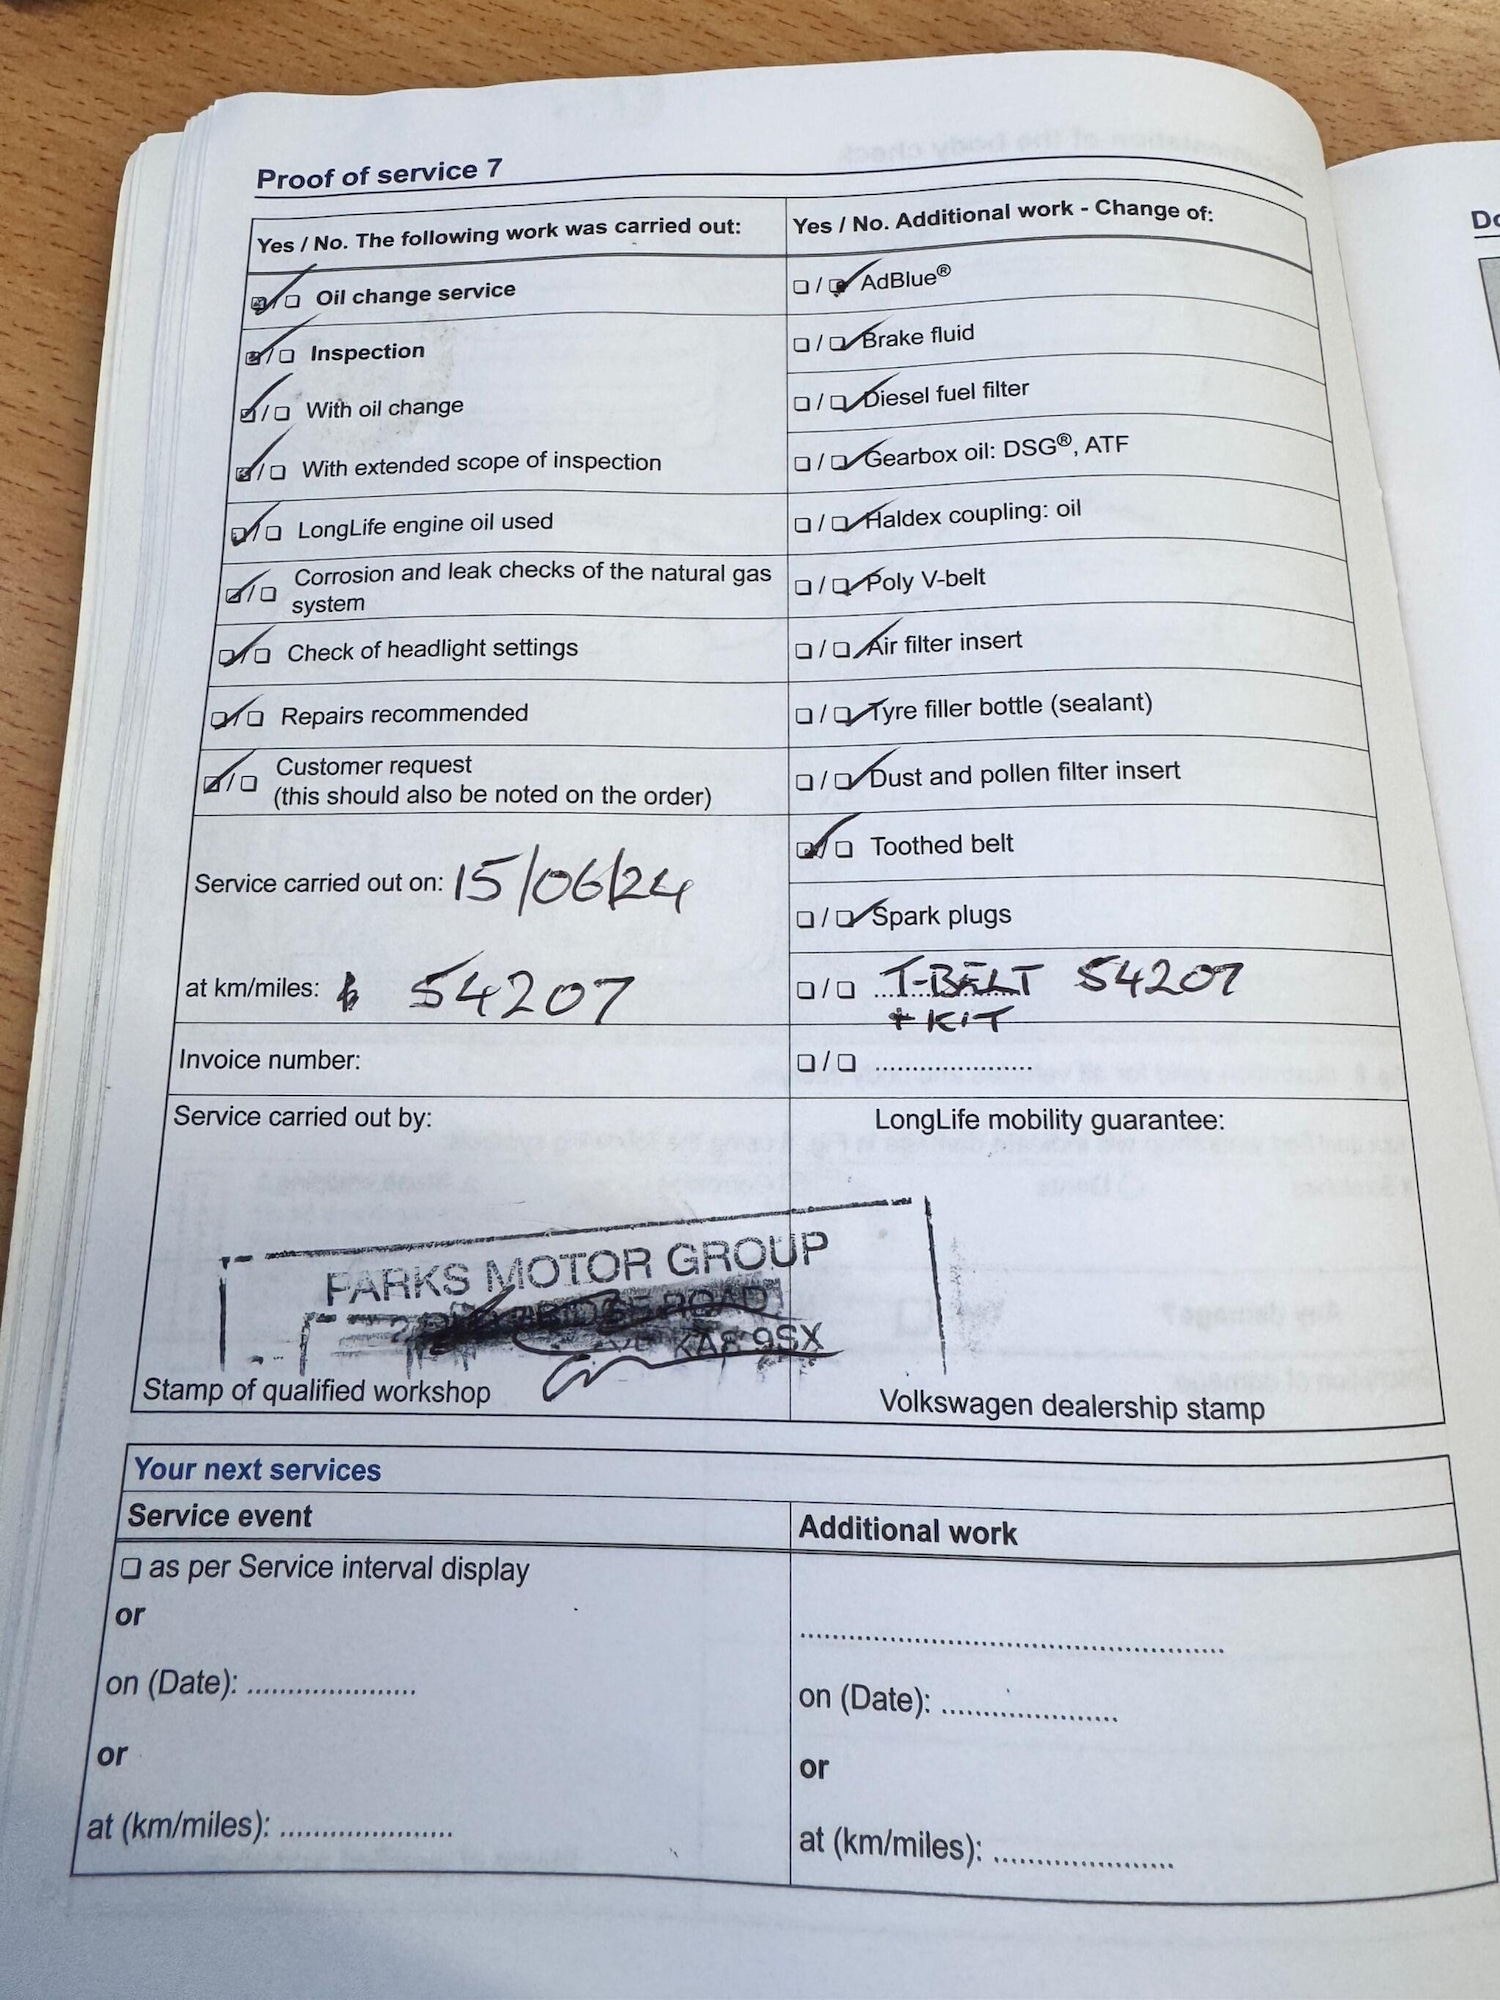 Proof of service 7
Yes / No. The following work was carried out:
Oil change service
Inspection
With oil change
With extended scope of inspection
LongLife engine oil used
Corrosion and leak checks of the natural gas
system
Check of headlight settings
Repairs recommended
Customer request
(this should also be noted on the order)
Service carried out on: 15/06/24
at km/miles: 54207
Invoice number:
Yes / No. Additional work - Change of:
AdBlue®
Brake fluid
Diesel fuel filter
Gearbox oil: DSG®, ATF
Haldex coupling: oil
Poly V-belt
Air filter insert
Tyre filler bottle (sealant)
Dust and pollen filter insert
Toothed belt
Spark plugs
T-BELT 54207
+ KIT
Service carried out by:
PARKS MOTOR GROUP
ROAD
9SX
Stamp of qualified workshop
LongLife mobility guarantee:
Volkswagen dealership stamp
Your next services
Service event
as per Service interval display
or
on (Date):
or
at (km/miles):
Additional work
on (Date):
or
at (km/miles):
Do